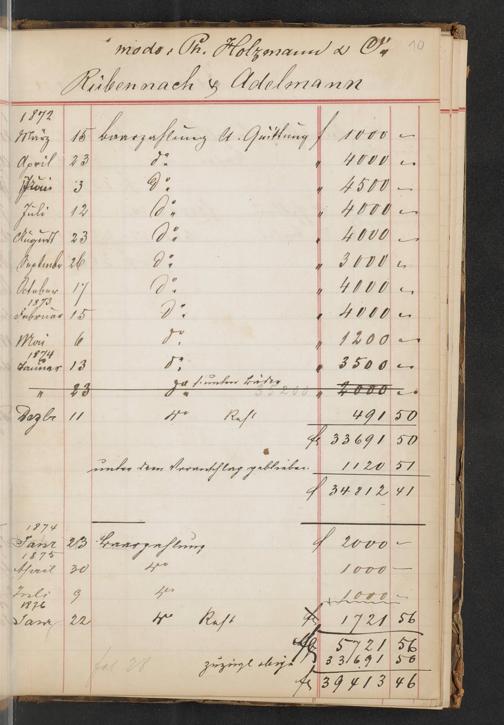 modo: Ph. Holzmann & Cie 10
Rübennach & Adelmann
1872
März 15 Baarzahlung a. Quittung f 1000 -
April 23 do " 4000 -
Juni 3 do " 4500 -
Juli 12 do " 4000 -
August 23 do " 4000 -
September 26 do " 3000 -
October 17 do " 4000 -
1873
Februar 15 do " 4000 -
Mai 6 do " 1200 -
1874
Januar 13 do " 3500 -
" 23 do " 2000 -
Dezbr 11 do Rest 491 50
fl 33691 50
unter dem Voranschlag geblieben 1120 51
fl 34812 41
1874
Janr 23 Baarzahlung fl 2000 -
1875
April 30 do 1000 -
Juli 9 do 1000 -
1876
Janr 22 do Rest 1721 56
5721 56
fol 28 zuzügl obige 33691 50
fl 39413 46